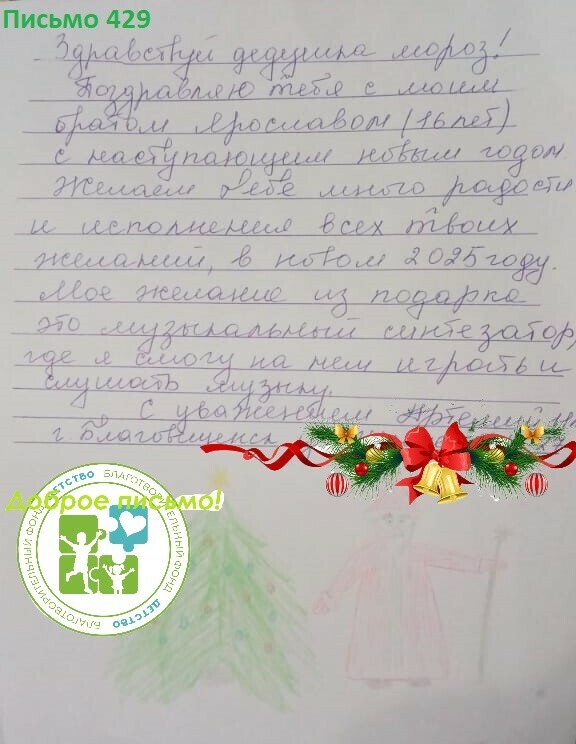 Письмо 429
Здравствуй дедушка мороз!
Поздравляю тебя с моим
братом Ярославом (16 лет)
с наступающим новым годом.
Желаем тебе много радости
и исполнения всех твоих
желаний, в новом 2025 году.
Мое желание из подарка
это музыкальный синтезатор,
где я смогу на нем играть и
слушать музыку.
С уважением Артемий
г. Благовещенск
Доброе письмо!
БЛАГОТВОРИТЕЛЬНЫЙ ФОНД ДЕТСТВО БЛАГОТВОРИТЕЛЬНЫЙ ФОНД ДЕТСТВО